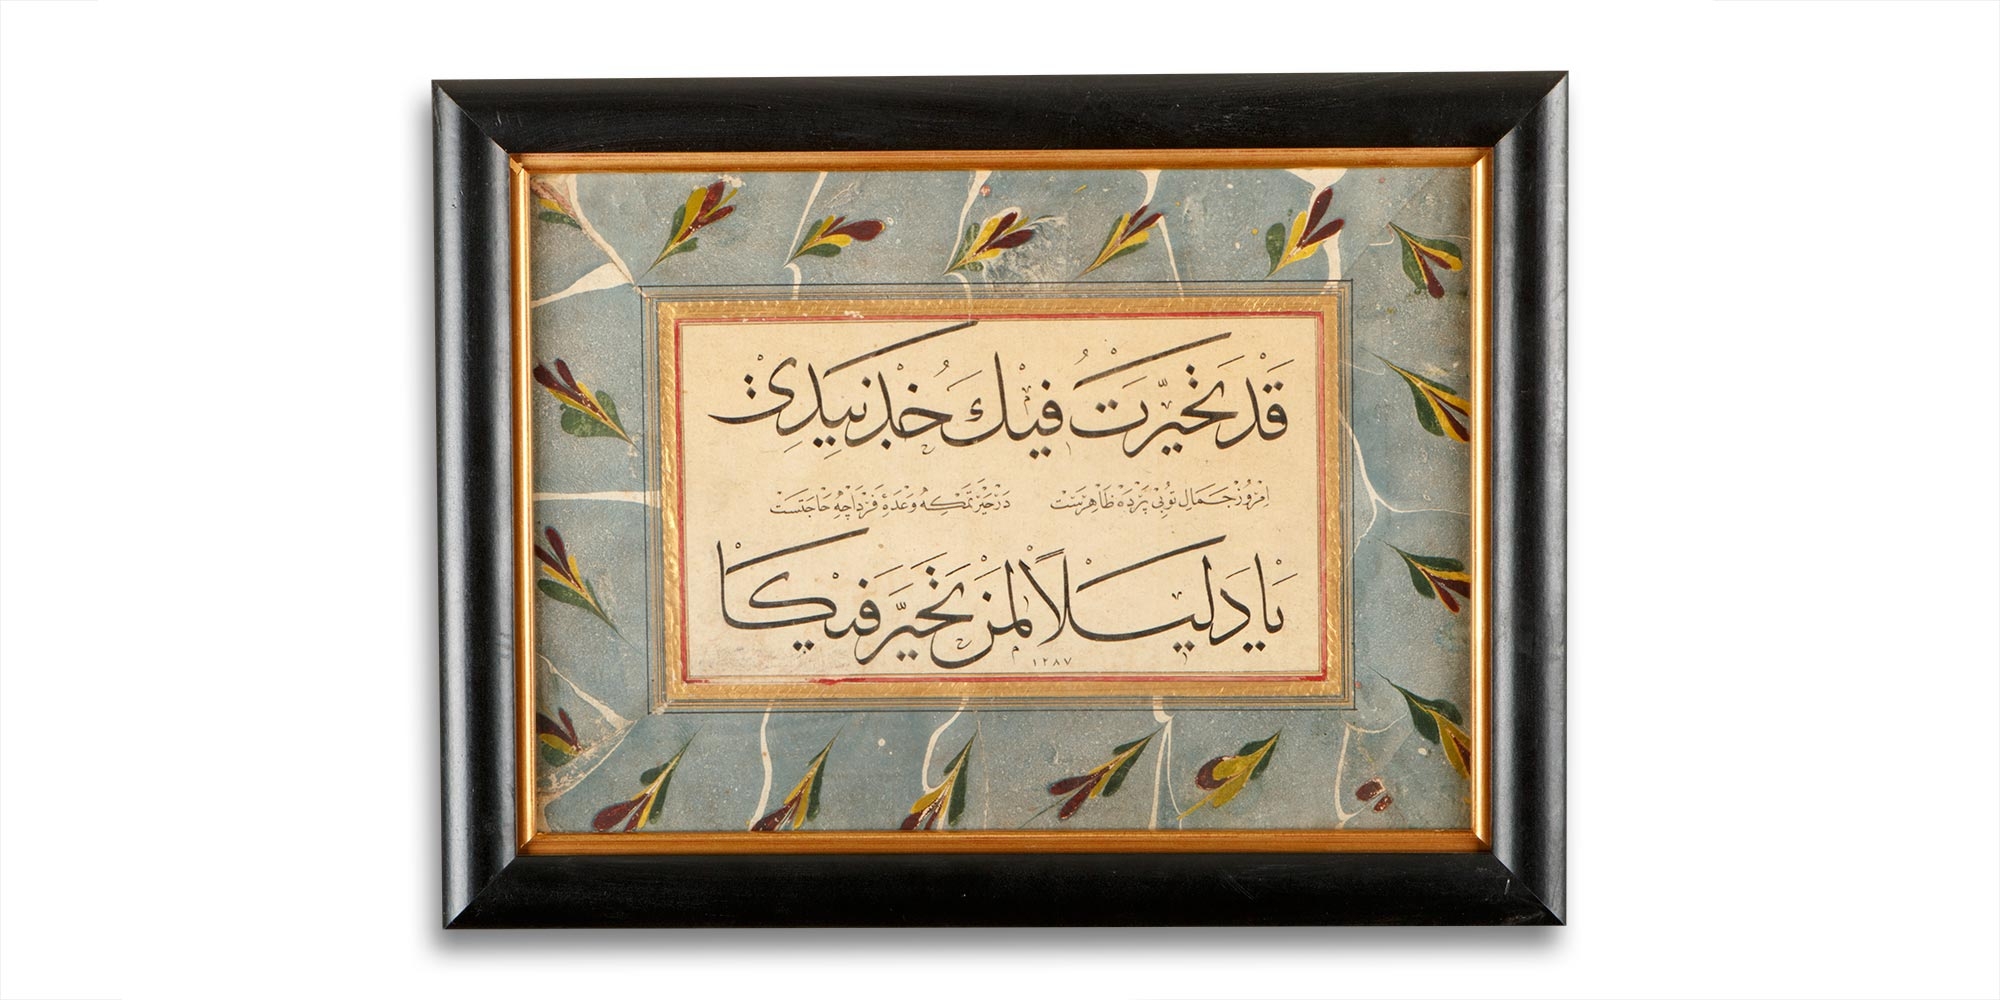 قَدْ تَحَيَّرْتُ فِيْكَ خُذْ بِيَدِيْ
امروز جمال تو بی پرده ظاهرست در حیرتم که وعدهٔ فردا چه حاجتست
يَا دَلِيْلاً لِمَنْ تَحَيَّرَ فِيْكَا
١٢٨٧